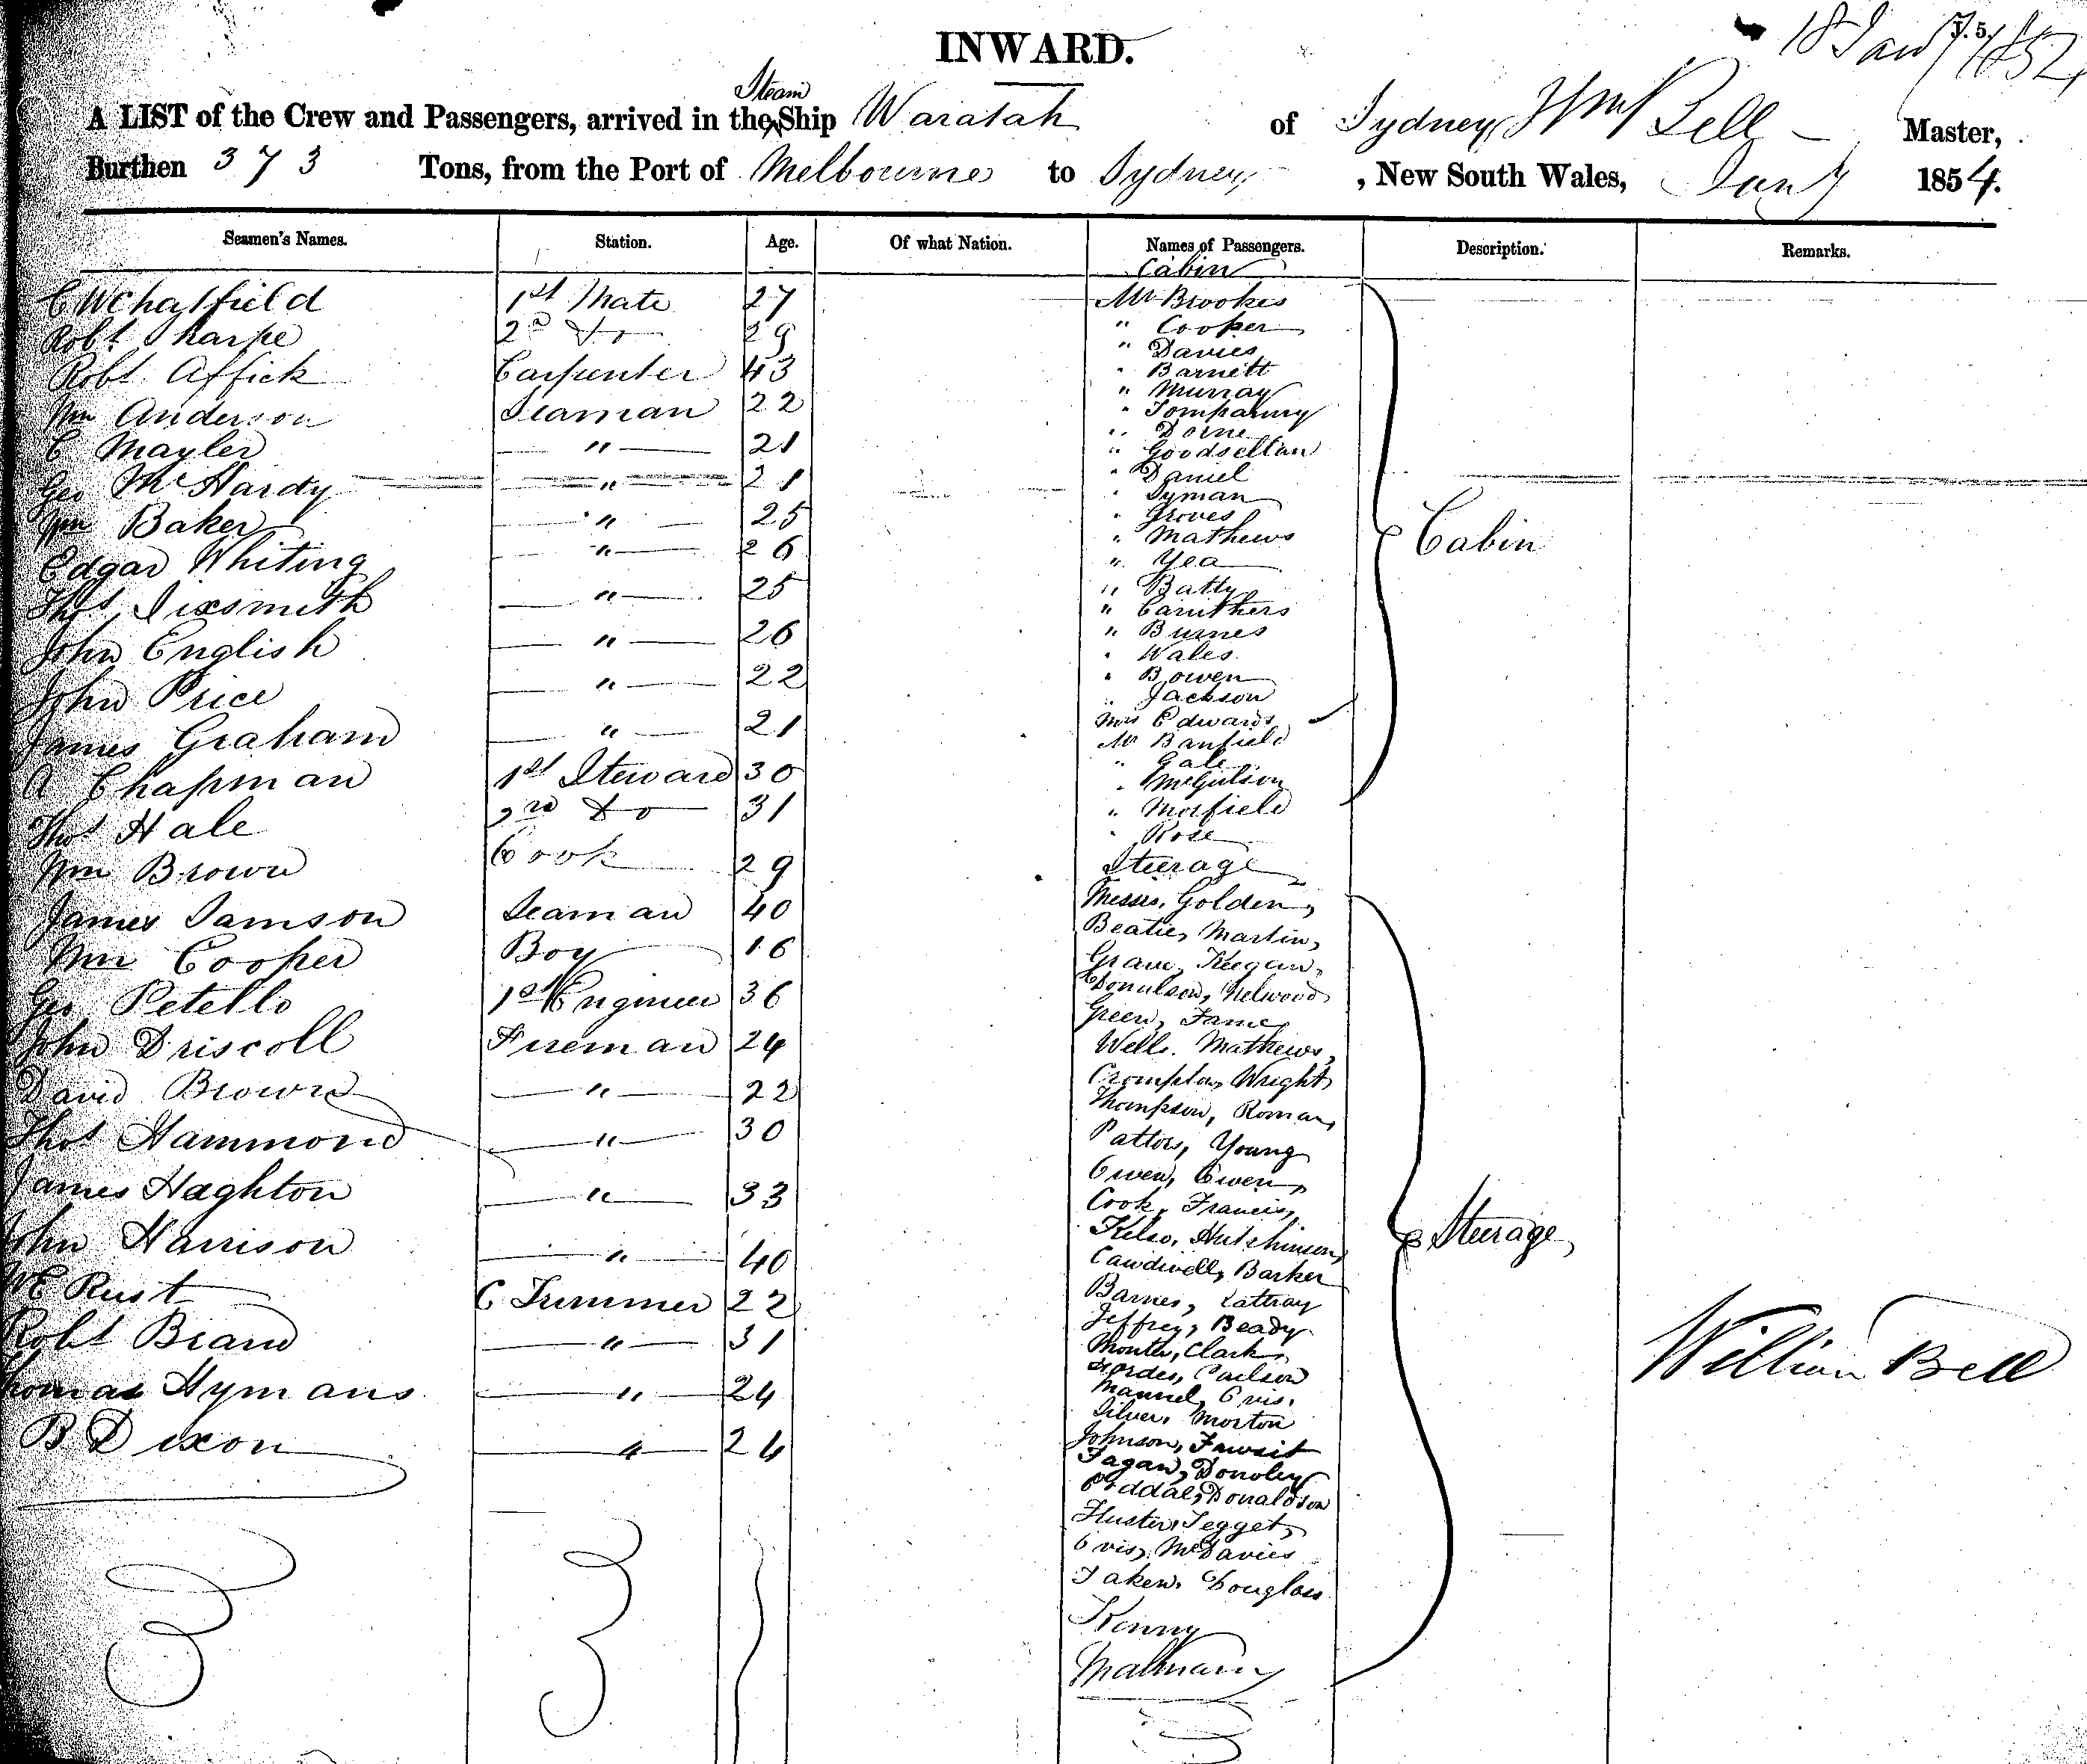 INWARD.
18 Jany 1854
Steam
A LIST of the Crew and Passengers, arrived in the Ship Waratah of Sydney, Wm Bell Master,
Burthen 373 Tons, from the Port of Melbourne to Sydney, New South Wales, Jany 1854.
Seamen's Names. Station. Age. Of what Nation. Names of Passengers. Description. Remarks.
Cabin
C W Chatfield 1st Mate 27 Mr Brookes
Robt Sharpe 2d Do 29 " Cooper
" Davies
Robt Affick Carpenter 43 " Barnett
" Murray
Wm Anderson Seaman 22
" Dorne
C Mayler " 21 " Goodsellan
Geo McHardy " 21 " Daniel
" Lyman
Wm Baker " 25 " Groves
" Mathews
Edgar Whiting " 26 " Yea
Cabin
Thos Sixsmith " 25 " Batty
" Caruthers
John English " 26 " Burnes
" Wales
John Price " 22 " Bowen
" Jackson
James Graham " 21 Mrs Edwards
Mr Banfield
A Chapman 1st Steward 30 " Gale
" McGilson
Thos Hale 2nd Do 31 " Morfield
" Rose
Wm Brown Cook 29 Steerage
James Samson Seaman 40 Messrs. Golden,
Wm Cooper Boy 16 Beatie, Martin,
Keegan,
Geo Petello 1st Engineer 36 Donulson, Helwood
Green, James
John Driscoll Fireman 24 Wells. Mathews,
David Brown " 22 Crompton, Wright,
Thompson, Roman,
Thos Hammond " 30 Pattors, Young
Owen, Owen,
James Haghton " 33 Cook, Francis,
Steerage,
John Harrison " 40 Kelso, Hutchinson,
Cawdwell, Barker
W E Rust C Trimmer 22 Barnes, Lattray
Robt Biand " 31 Jeffrey, Beady
Clark,
William Bell
Thomas Hymans " 24
Manuel,
Silver, Morton
B Dixon " 24 Johnson, Fawsit
Fagan, Donoley
Donaldson
Huster, Tegget,
McDavies
Taken, Douglass
Kenny